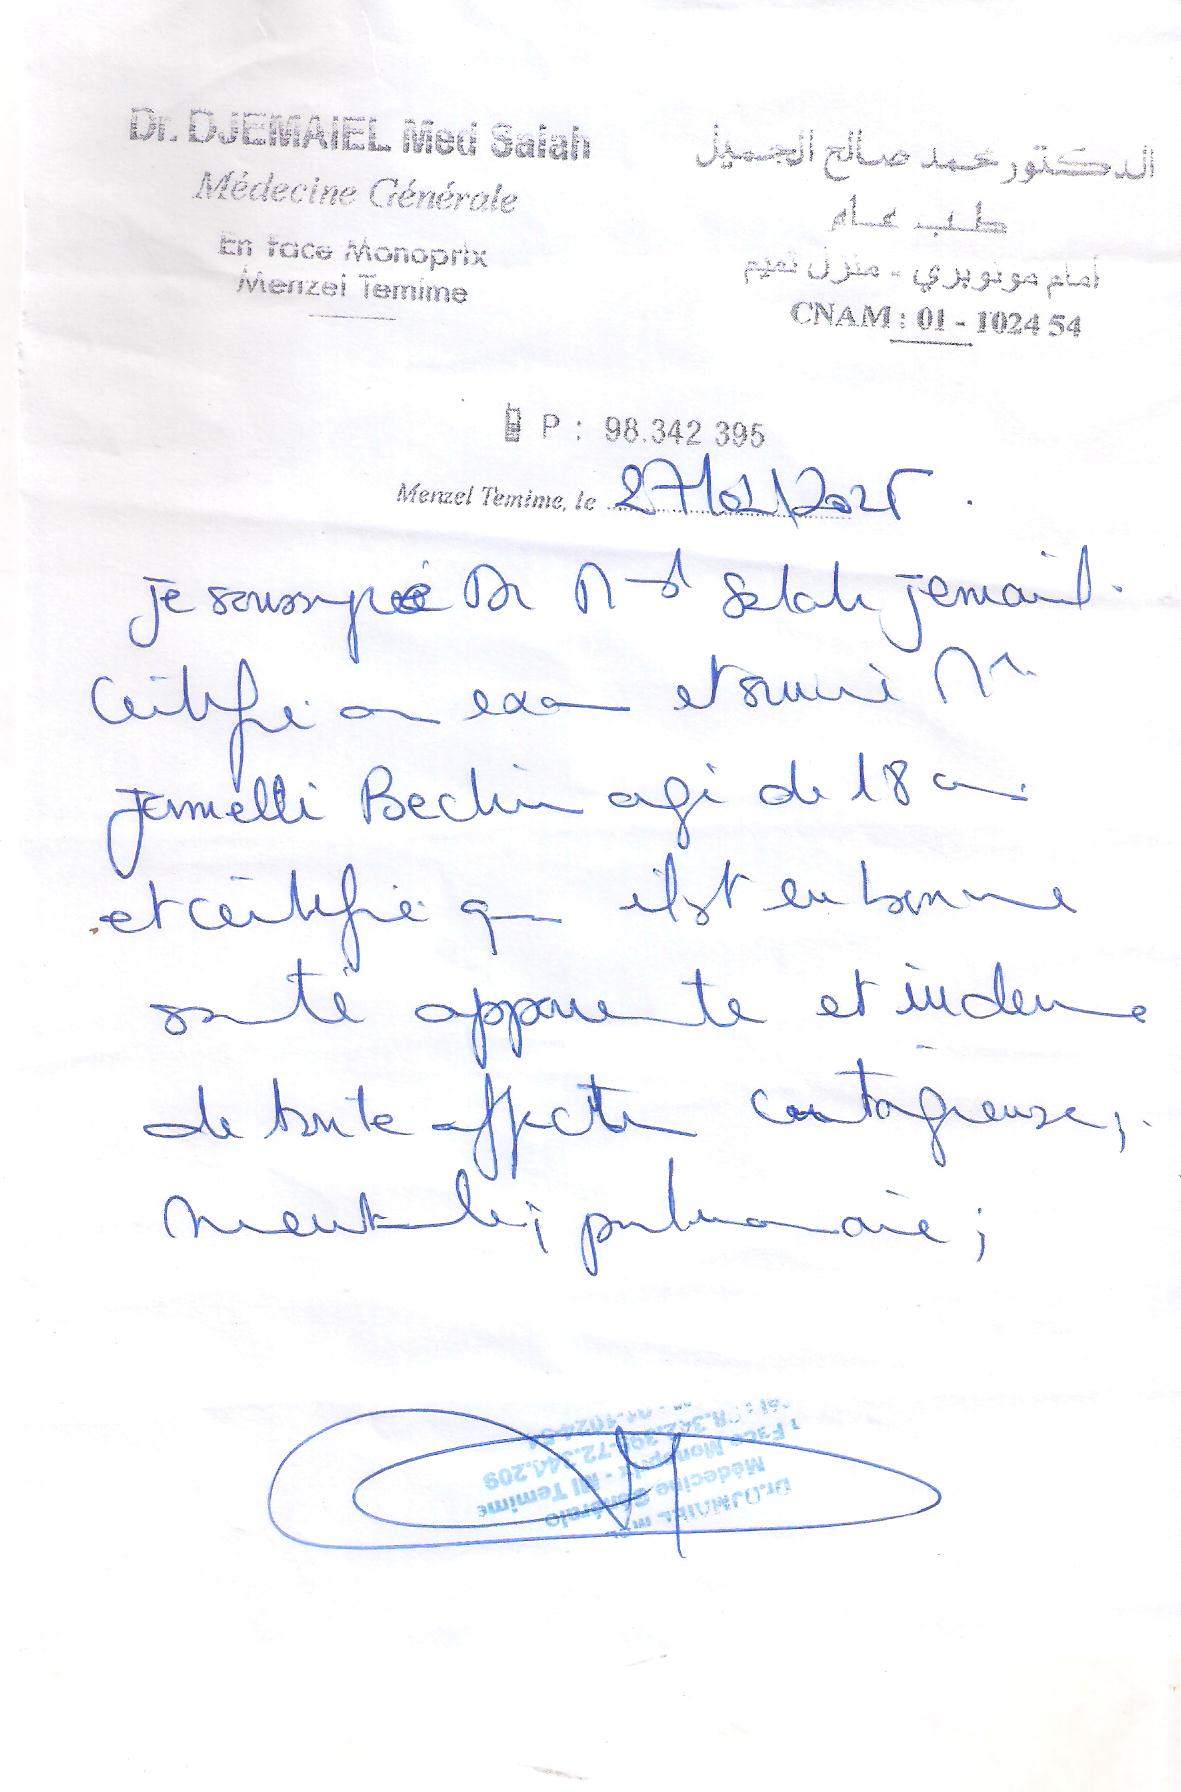 Dr. DJEMAIEL Med Salah
Médecine Générale
En face Monoprix
Menzel Temime
الدكتور محمد صالح الجميل
طب عام
أمام مونوبري - منزل تميم
CNAM : 01 - 1024 54
P : 98.342 395
Menzel Temime, le 27/01/2025
je soussigné Dr Md Salah jemaiel
Certifie on exam et suivi Mr
jemelli Bechir agé de 18 ans
et certifie que il est en bonne
santé apparente et indemne
de toute affection contagieuse,
mentale; pulmonaire;
Médecine Générale
Face Monoprix - Ml Temime
98.342.395-72.344.209
01.102454